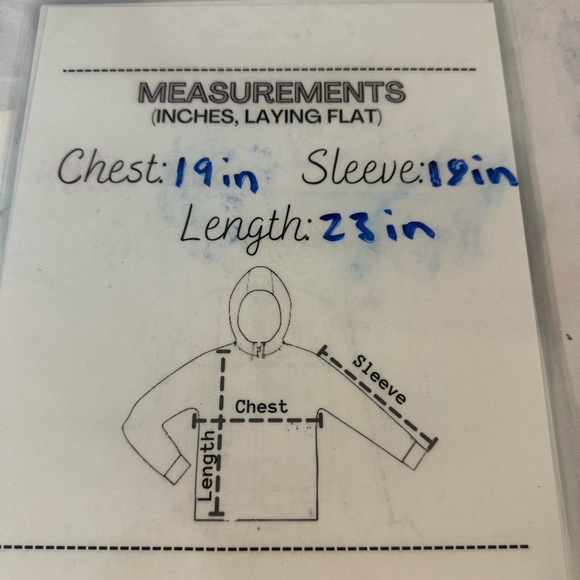 MEASUREMENTS
(INCHES, LAYING FLAT)
Chest: 19in Sleeve: 18in
Length: 23in
Sleeve
Chest
Length